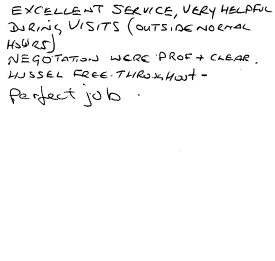 EXCELLENT SERVICE, VERY HELPFUL
DURING VISITS (OUTSIDE NORMAL
HOURS)
NEGOTATION WERE PROF + CLEAR.
HUSSEL FREE THROUGHOUT -
Perfect job.